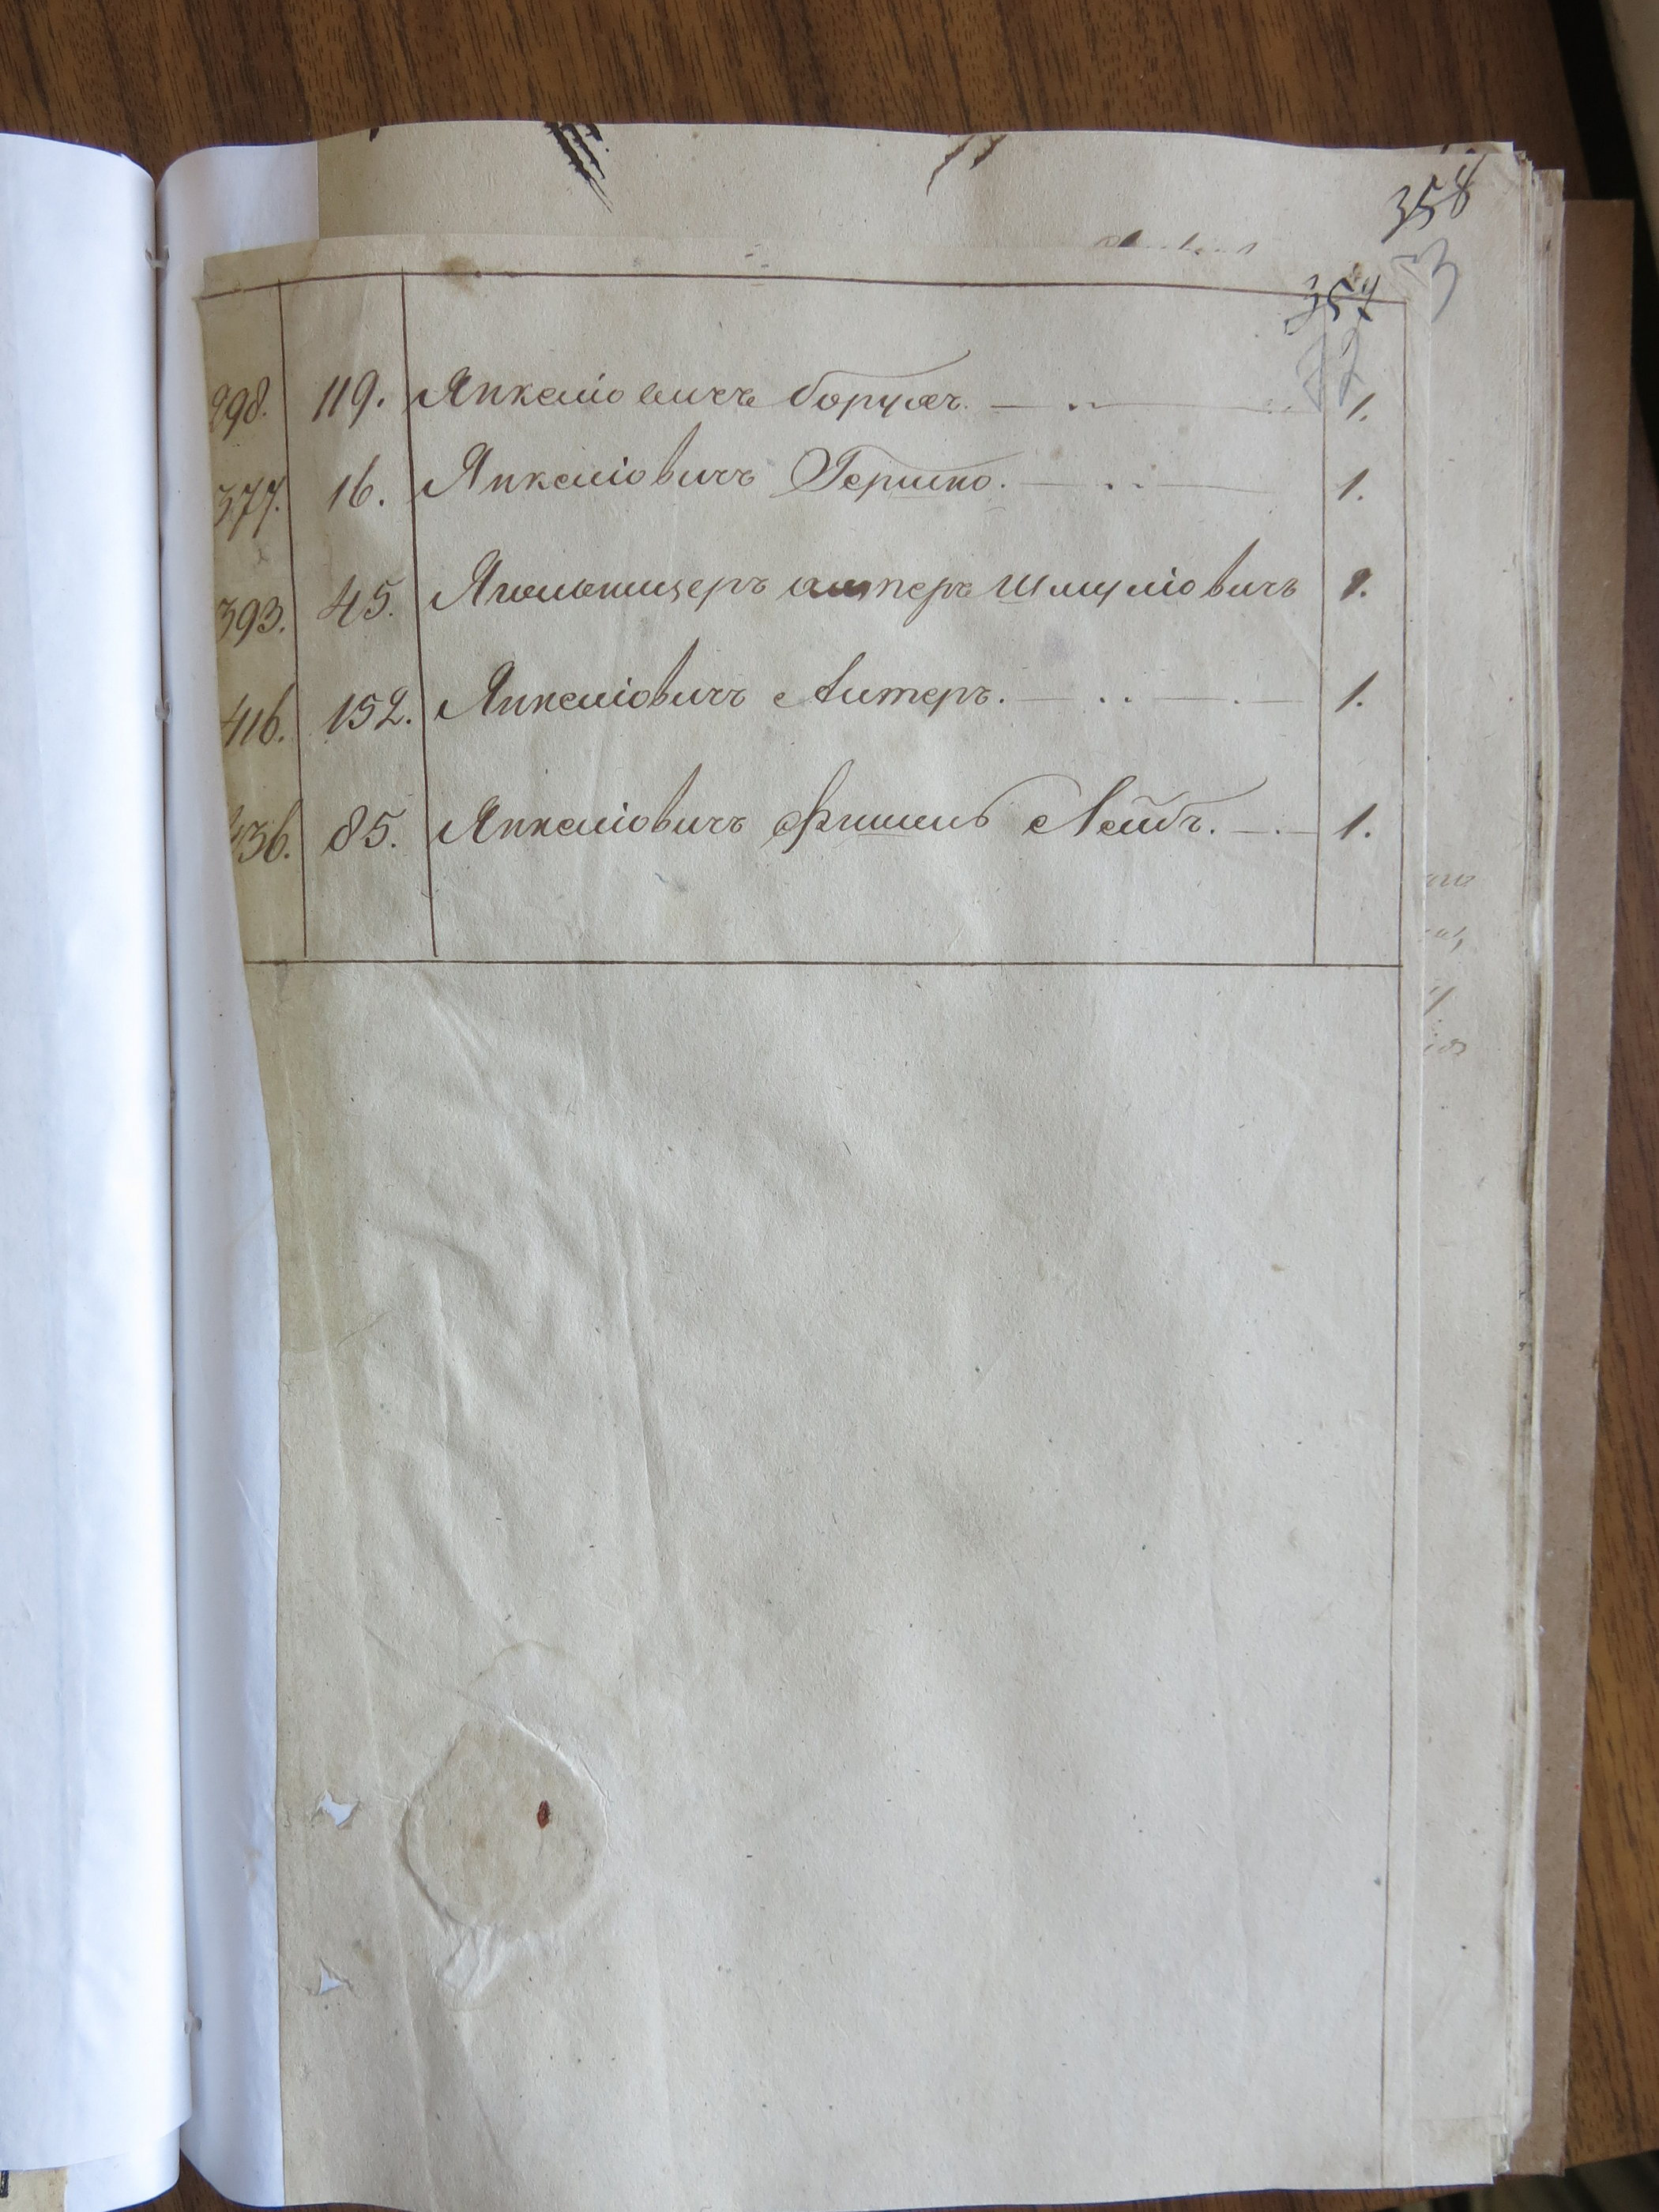 358
3
357
22
298. 119. Янкеліовичъ Борухъ. 1.
377. 16. Янкеліовичъ Гершко. 1.
393. 45. Ягельницеръ Алтеръ Шмуліовичъ 1.
416. 152. Янкеліовичъ Алтеръ. 1.
436. 85. Янкеліовичъ Фишель Лейбъ. 1.